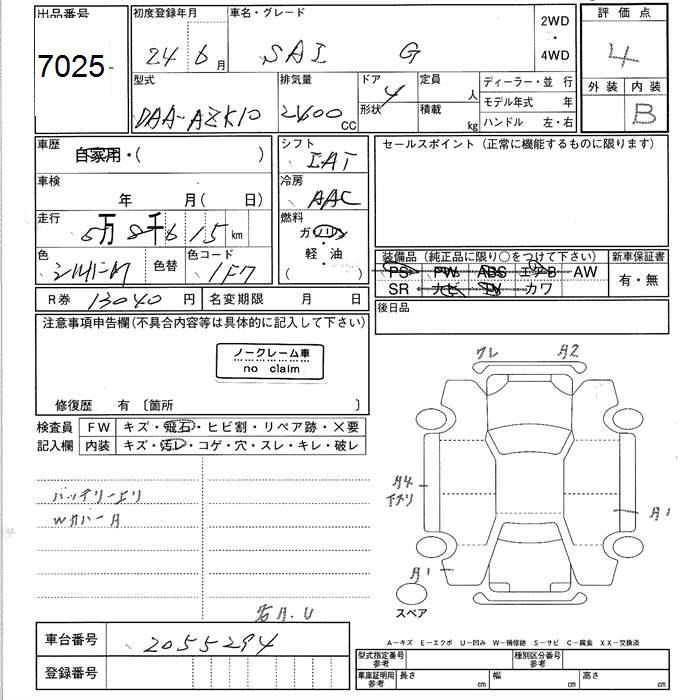 出品番号
7025
初度登録年月
24 6 月
車名・グレード
SAI G
2WD
・
4WD
評価点
4
外装 内装
B
型式
DAA-AZK10
排気量
2400 CC
ドア
4
形状
定員
人
積載
kg
ディーラー・並 行
モデル年式 年
ハンドル 左・右
車歴
自家用・( )
車検
年 月( 日)
走行
万 千
8 6 15 km
色
シルバーM
色替
色コード
1F7
シフト
IAT
冷房
AAC
燃料
ガソリン
・
軽・油
( )
セールスポイント(正常に機能するものに限ります)
装備品(純正品に限り○をつけて下さい)
PS PW ABS エアB AW
SR ナビ TV カワ
新車保証書
有・無
後日品
R券 13040 円
名変期限 月 日
注意事項申告欄(不具合内容等は具体的に記入して下さい)
ノークレーム車
no claim
修復歴 有〔箇所 〕
検査員
記入欄
FW キズ・飛石・ヒビ割・リペア跡・×要
内装 キズ・汚レ・コゲ・穴・スレ・キレ・破レ
バッテリーエリ
WカバーA
ワレ A2
A4
A1
A1
スペア
石A.U
車台番号
2055294
登録番号
A−キズ E−エクボ U−凹み W−補修跡 S−サビ C−腐食 XX−交換済
型式指定番号
参考
種別区分番号
参考
車庫証明用
参考
長さ cm
幅 cm
高さ cm